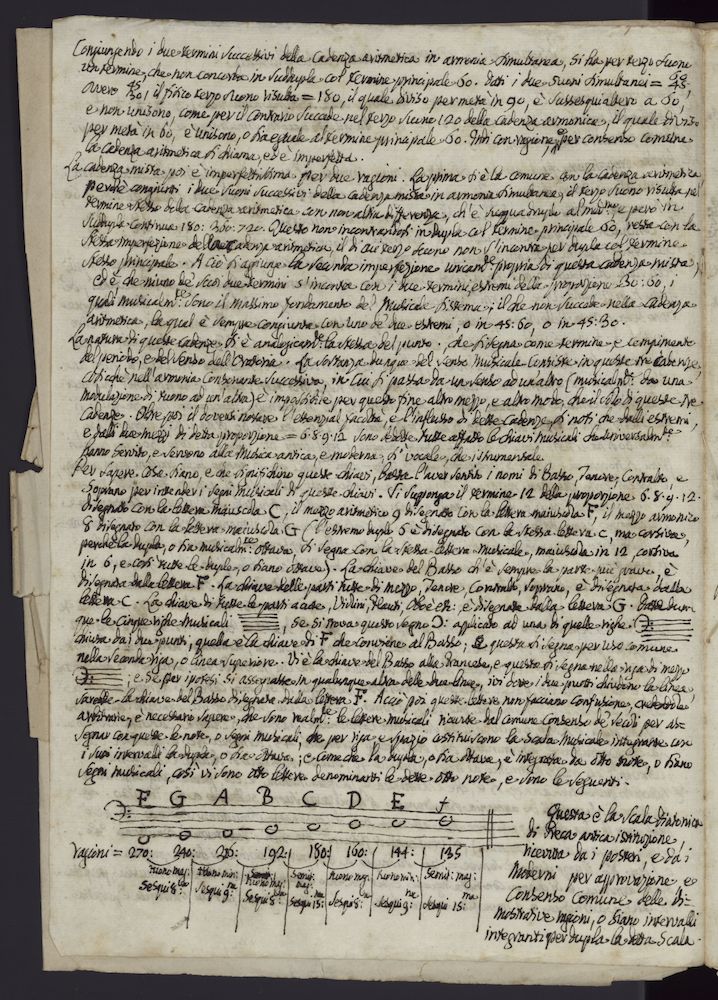 Congiungendo i due termini successivi della Cadenza aritmetica in armonia simultanea, si ha per terzo suono
un termine, che non concorda in suddupla col termine principale 60. Dati i due suoni simultanei = 60 45,
overo 45 30, il fisico terzo suono risulta = 180, il quale diviso per metà in 90, è sussesquialtero a 60,
e non unisono, come per il contrario succede nel terzo suono 120 della cadenza armonica, il quale diviso
per metà in 60, è unisono, o sia eguale al termine principale 60. Indi con ragione, e per consenso comune
la cadenza aritmetica si chiama, ed è imperfetta.
La cadenza mista poi è imperfettissima per due ragioni. La prima si è la comune con la cadenza aritmetica
perchè congiunti i due suoni successivi della cadenza mista in armonia simultanea, il terzo suono risulta nel
termine stesso della cadenza aritmetica con non altra differenza, ch'è e però in
suddupla continua 180: 360: 720. Questo non incontrandosi in dupla col termine principale 60, resta con la
stessa imperfezione della cadenza aritmetica, il di cui terzo suono non s'incontra per dupla col termine
stesso principale. A ciò si aggiunge la seconda imperfezione unicamte propria di questa cadenza mista,
ed è che niuno de suoi due termini s'incontra con i due termini estremi della proporzione 30: 60, i
quali musicalmte sono il massimo fondamento del Musicale sistema; il che non succede nella cadenza
aritmetica, la qual è sempre congiunta con uno de due estremi, o in 45: 60, o in 45: 30.
La natura di queste cadenze si è analogicamte la stessa del punto, che si segna come termine, e compimento
del periodo, e del senso dell'Oratoria. La sostanza dunque del senso musicale consiste in queste tre cadenze,
cosicchè nell'armonia consonante successiva, in cui si passa da un senso ad un altro (musicalmte da una
modulazione di tuono ad un altra) è impossibile per questo fine altro mezzo, e altro modo, che il solo di queste tre
cadenze. Oltre poi il doversi notare l'essenzial facoltà, e l'influsso di dette cadenze, si noti che dalli estremi,
e dalli due mezzi di detta proporzione = 6. 8. 9. 12 sono dedotte tutte affatto le chiavi musicali che universalmte
hanno servito, e servono alla musica antica, e moderna, sì vocale, che istrumentale.
Per sapere cosa siano, e che significhino queste chiavi, basta l'aver sentito i nomi di Basso, Tenore, Contralto, e
Soprano per intender i segni musicali di queste chiavi. Si supponga il termine 12 della proporzione 6. 8. 9. 12.
disegnato con la lettera maiuscola C, il mezzo aritmetico 9 disegnato con la lettera maiuscola F, il mezzo armonico
8 disegnato con la lettera maiuscola G (l'estremo duplo 6 è disegnato con la stessa lettera c, ma corsiva,
perchè la dupla, o sia musicalmte ottava, si segna con la stessa lettera musicale, maiuscola in 12, corsiva
in 6, e così tutte le duple, o siano ottave). La chiave del Basso ch'è sempre la parte più grave, è
disegnata dalla lettera F. La chiave delle parti tutte di mezzo, Tenore, Contralto, Soprano, è disegnata dalla
lettera C. La chiave di tutte le parti acute, Violini, Flauti, Oboè etc: è disegnata dalla lettera G. Date dun=
que le cinque righe musicali, se si trova questo segno applicato ad una di quelle righe
chiusa da i due punti, quella è la chiave di F che conviene al Basso; e questa si segna per uso comune
nella seconda riga, o linea superiore. Vi è la chiave del Basso alla francese, e questa si segna nella riga di mezzo
; e se per ipotesi si assegnasse in qualunque altra delle due linee, ivi dove i due punti chiudono la linea,
sarebbe la chiave del Basso disegnata dalla lettera F. Acciò poi queste lettere non facciano confusione, credendole
arbitrarie, è necessario sapere, che sono realmte le lettere musicali ricevute dal comune consenso de secoli per as=
segnar con queste le note, o segni musicali, che per riga, e spazio costituiscono la scala musicale integrante con
i suoi intervalli la dupla, o sia ottava; e come che la dupla, o sia ottava, è integrata da otto note, o siano
segni musicali, così vi sono otto lettere denominanti le dette otto note, e sono le seguenti.
F G A B C D E f
ragioni = 270: 240: 216: 192: 180: 160: 144: 135
tuono mag: tuono min: tuono mag: semit: mag: tuono mag: tuono min: semit: mag:
sesqui 8: sesqui 9: sesqui 8: sesqui 15: sesqui 8: sesqui 9: sesqui 15:
Questa è la scala diatonica
di Greca antica istituzione,
ricevuta da i posteri, e da i
Moderni per approvazione e
Consenso Comune delle di=
mostrative ragioni, o siano intervalli
integranti per dupla la detta scala.